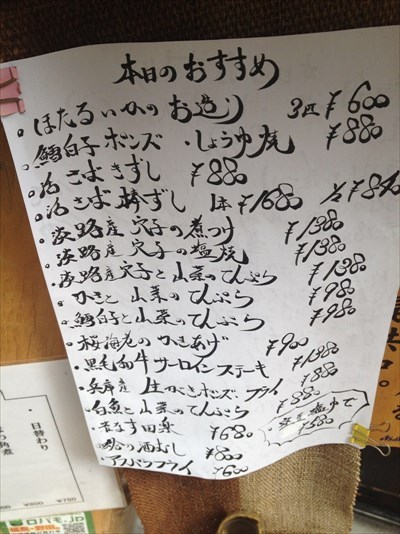 本日のおすすめ
・ほたるいかのお造り 3匹 ¥600
・鱈白子ポンズ・しょうゆ焼 ¥880
・活さばきずし ¥880
・活さば棒ずし 1本 ¥1680 1/2 ¥840
・淡路産穴子の煮つけ ¥1380
・淡路産穴子の塩焼 ¥1380
・淡路産穴子と山菜のてんぷら ¥1380
・かきと山菜のてんぷら ¥980
・鱈白子と山菜のてんぷら ¥980
・桜海老のかきあげ ¥900
・黒毛和牛サーロインステーキ ¥1980
・兵庫産生かきポンズ・フライ ¥880
・白魚と山菜のてんぷら ¥880
・米なす田楽 ¥680
・蛤の酒むし ¥800
・アスパラフライ ¥600
塩ゆで ¥580
・日替わり
角煮
¥800 ¥750
ロハモ.JP